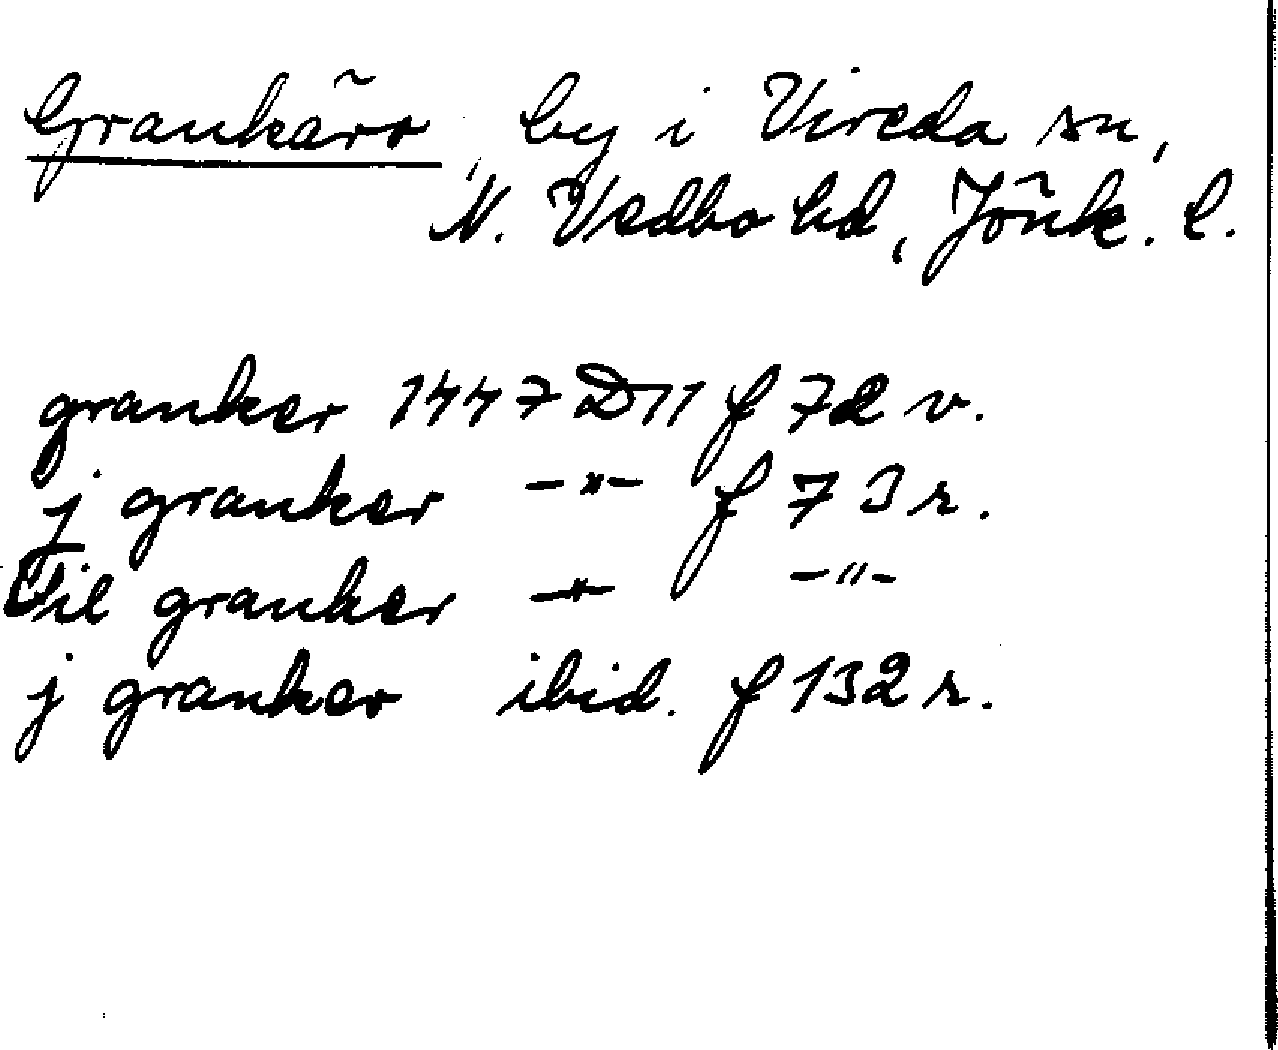 Grankärr, by i Vireda sn,
N. Vedbo hd, Jönk. l.
granker 1447 D11 f 72 v.
j granker -"- f 73 r.
Til granker -"- -"-
j granker ibid. f 132 r.